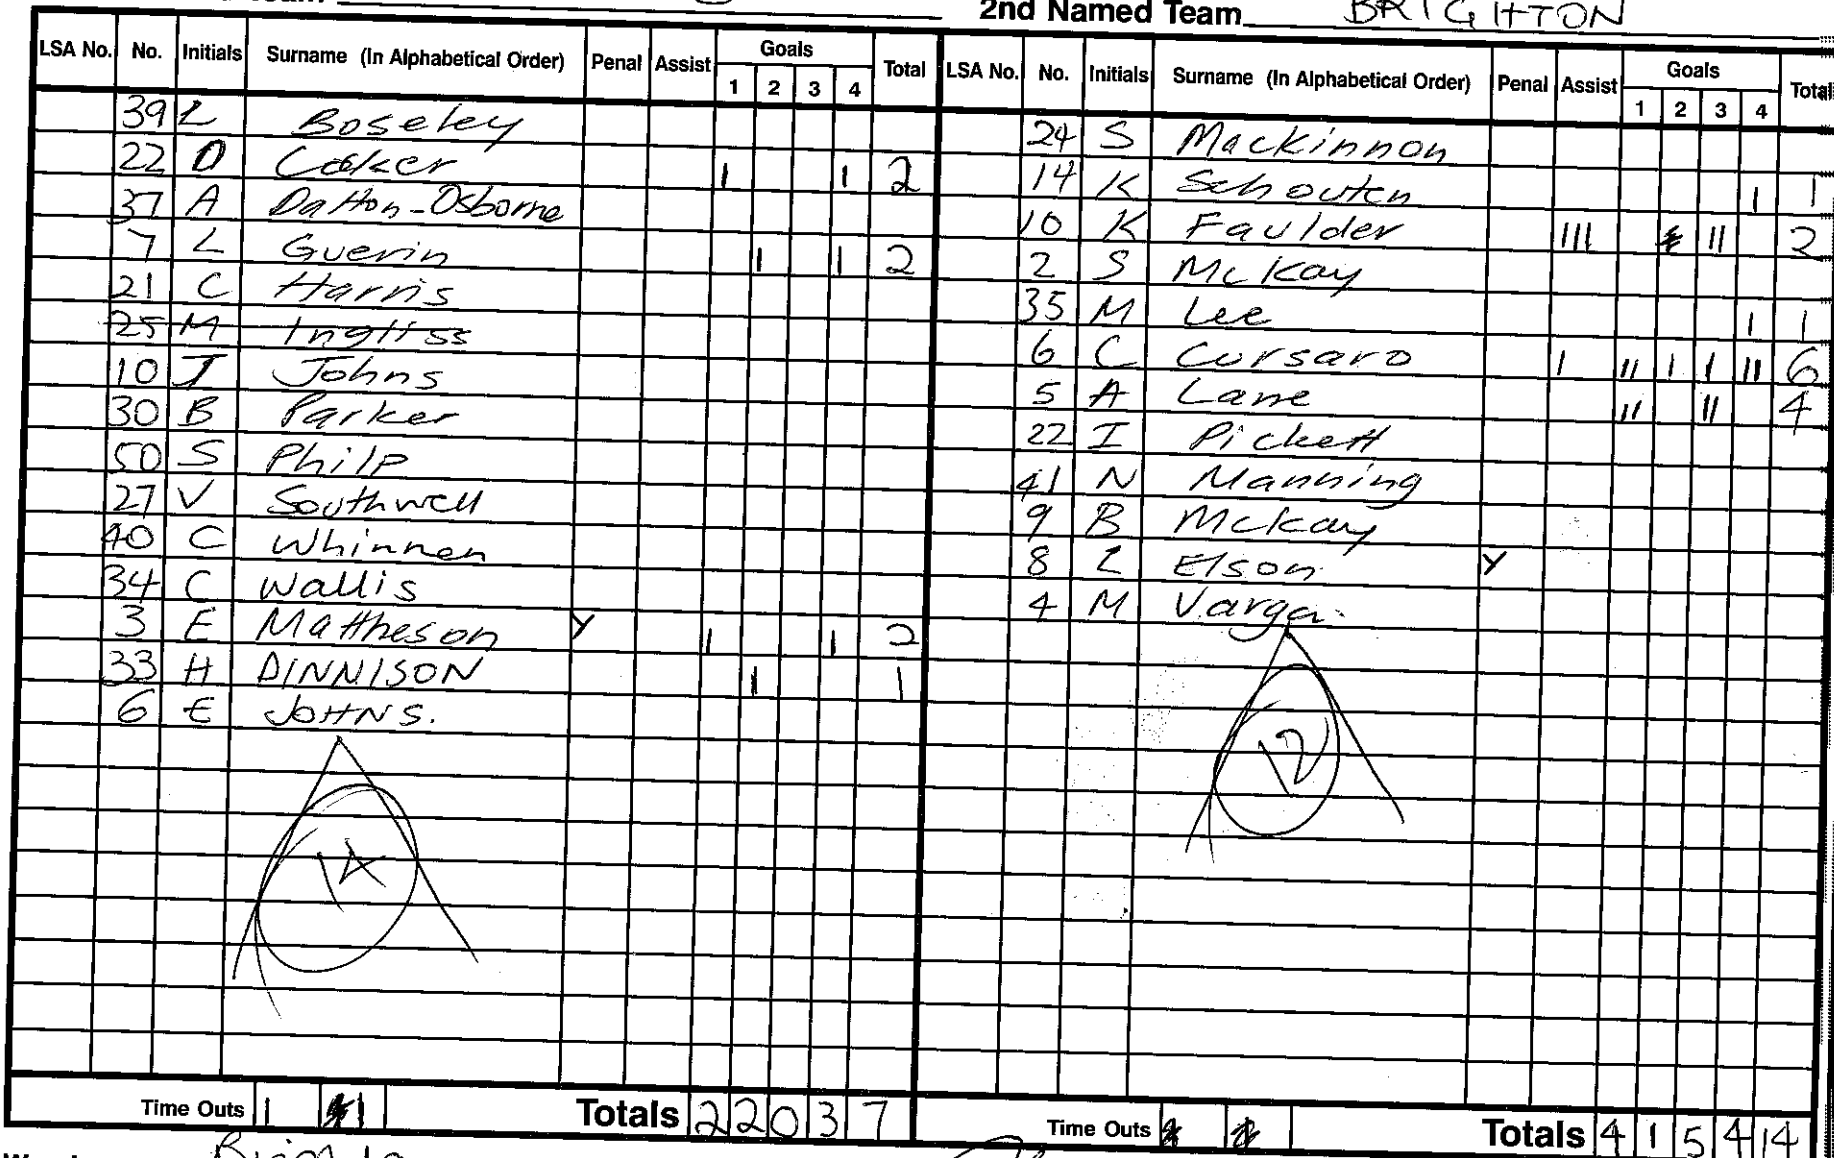 2nd Named Team BRIGHTON
LSA No. No. Initials Surname (In Alphabetical Order) Penal Assist Goals 1 2 3 4 Total
39 L Boseley
22 D Coker 1 1 2
37 A Datton-Osborne
7 L Guerin 1 1 2
21 C Harris
25 M Ingliss
10 J Johns
30 B Parker
50 S Philp
27 V Southwell
40 C Whinnen
34 C Wallis
3 E Matheson Y 1 1 2
33 H DINNISON 1 1
6 E JOHNS.
14
Time Outs 1 1 Totals 2 2 0 3 7
LSA No. No. Initials Surname (In Alphabetical Order) Penal Assist Goals 1 2 3 4 Total
24 S Mackinnon
14 K Schouten 1 1
10 K Faulder III II 2
2 S McKay
35 M Lee 1 1
6 C Cursaro I II I I II 6
5 A Lane II II 4
22 I Pickett
41 N Manning
9 B McKay
8 L Elson Y
4 M Varga.
12
Time Outs Totals 4 1 5 4 14